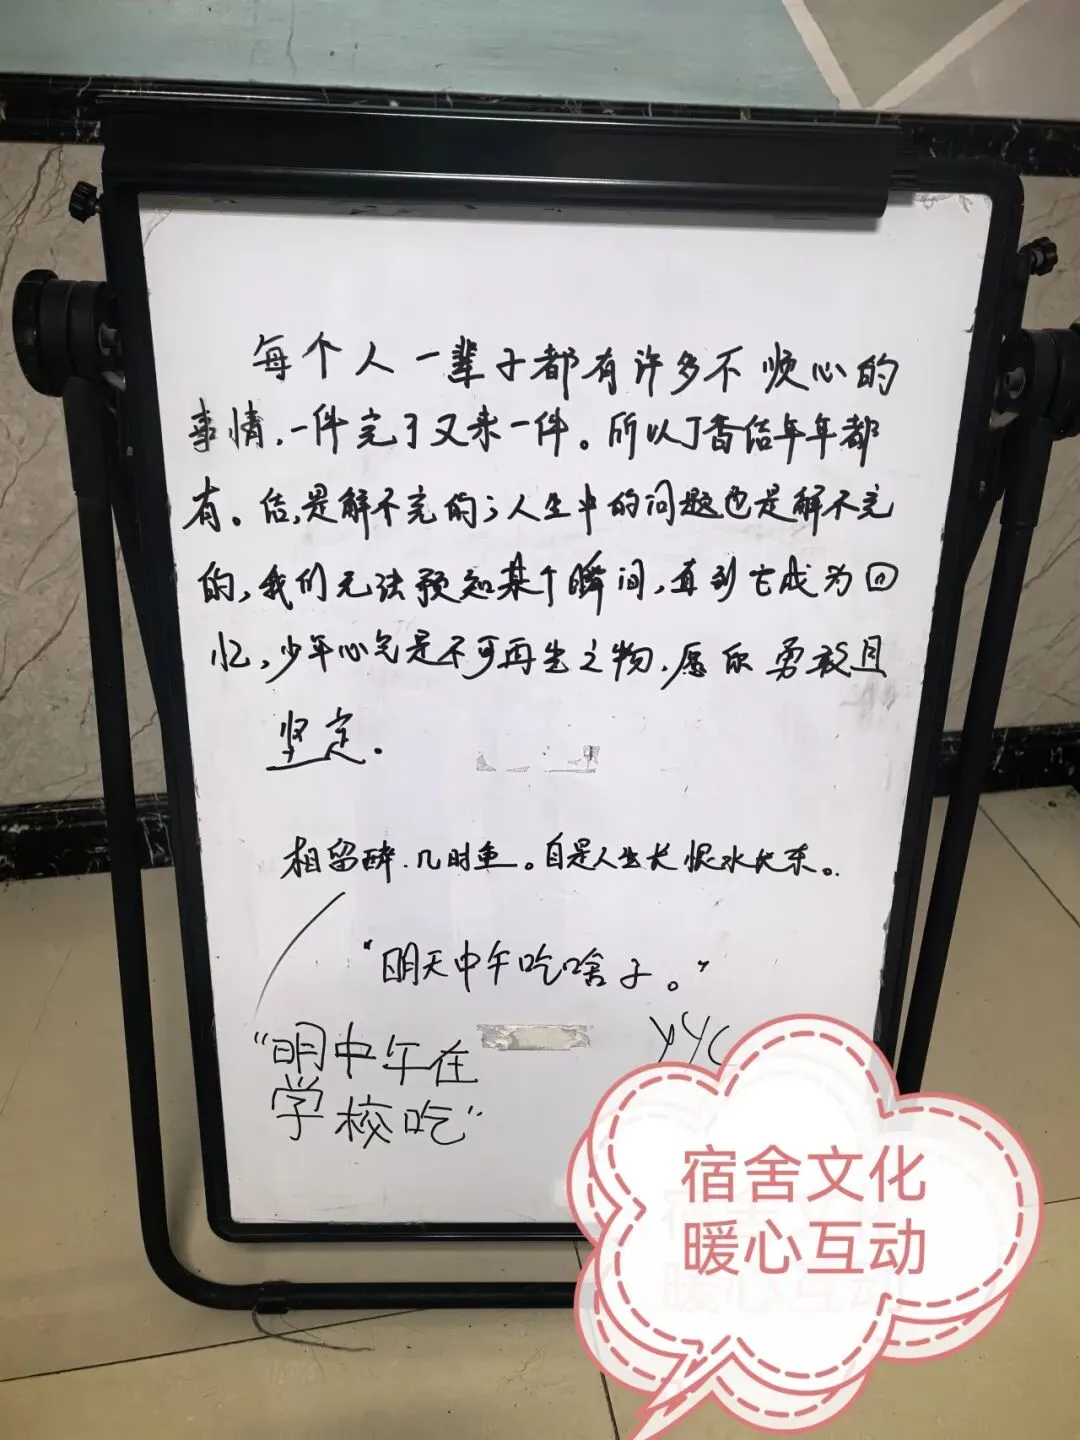 每个人一辈子都有许多不顺心的
事情,一件完了又来一件。所以丁香结年年都
有。结,是解不完的;人生中的问题也是解不完
的,我们无法预知某个瞬间,直到它成为回
忆,少年心气是不可再生之物,愿你勇敢且
坚定.
相留醉.几时重。自是人生长恨水长东。
"明天中午吃啥子。"
"明中午在
学校吃"
YYC
宿舍文化
暖心互动